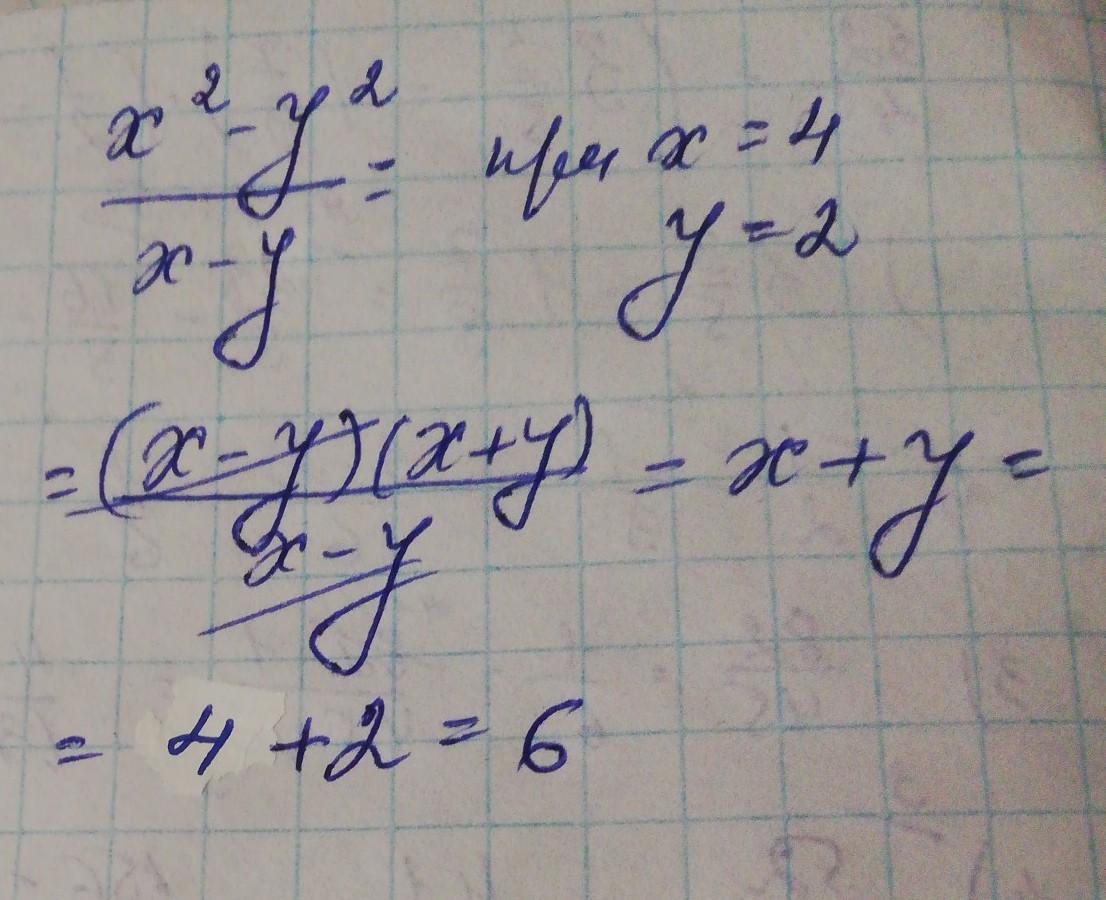 x² - y² / x - y = при x = 4
y = 2
= (x - y)(x + y) / x - y = x + y =
= 4 + 2 = 6